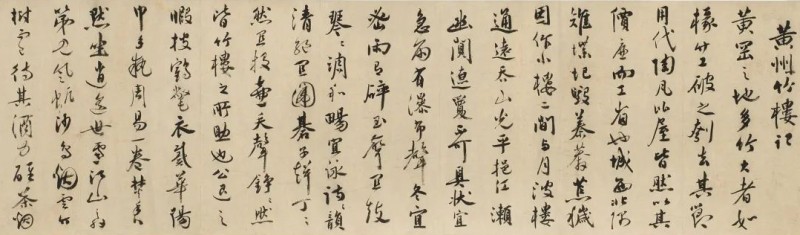 黃州竹樓記
黃岡之地多竹大者如
椽竹工破之刳去其節
用代陶瓦比屋皆然以其
價廉而工省也城西北隅
雉堞圮毀蓁莽荒穢
因作小樓二間与月波樓
通遠吞山光平挹江瀨
幽闃遼夐不可具狀宜
急雨有瀑布聲冬宜
密雨有碎玉聲宜鼓
琴〻調和暢宜詠詩〻韻
清絕宜圍碁子聲丁〻
然宜投壺矢聲錚〻然
皆竹樓之所助也公退之
暇披鶴氅衣戴華陽
巾手執周易一卷焚香
默坐消遣世慮江山之外
第見風帆沙鳥烟雲竹
樹而已待其酒力醒茶烟